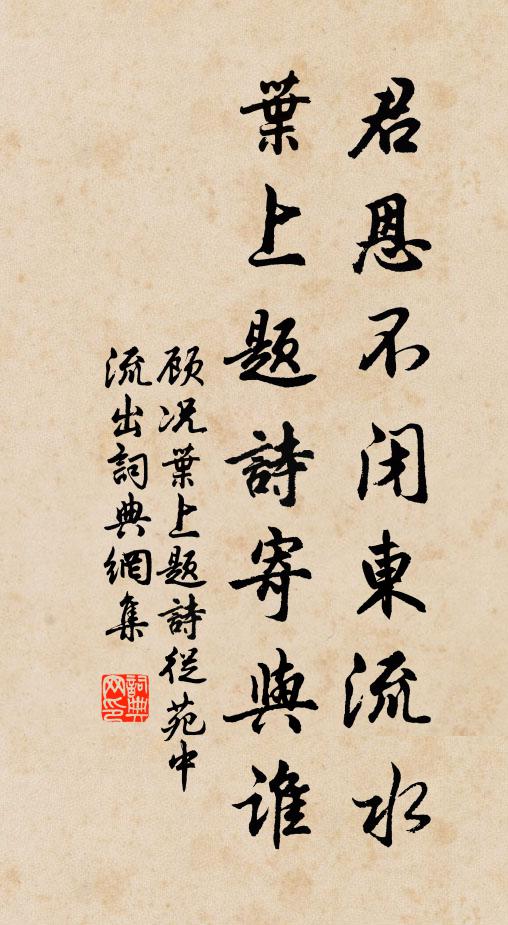 君恩不闭東流水
葉上題詩寄與誰
顾况葉上題詩從苑中
流出詞典網集
詞典网印